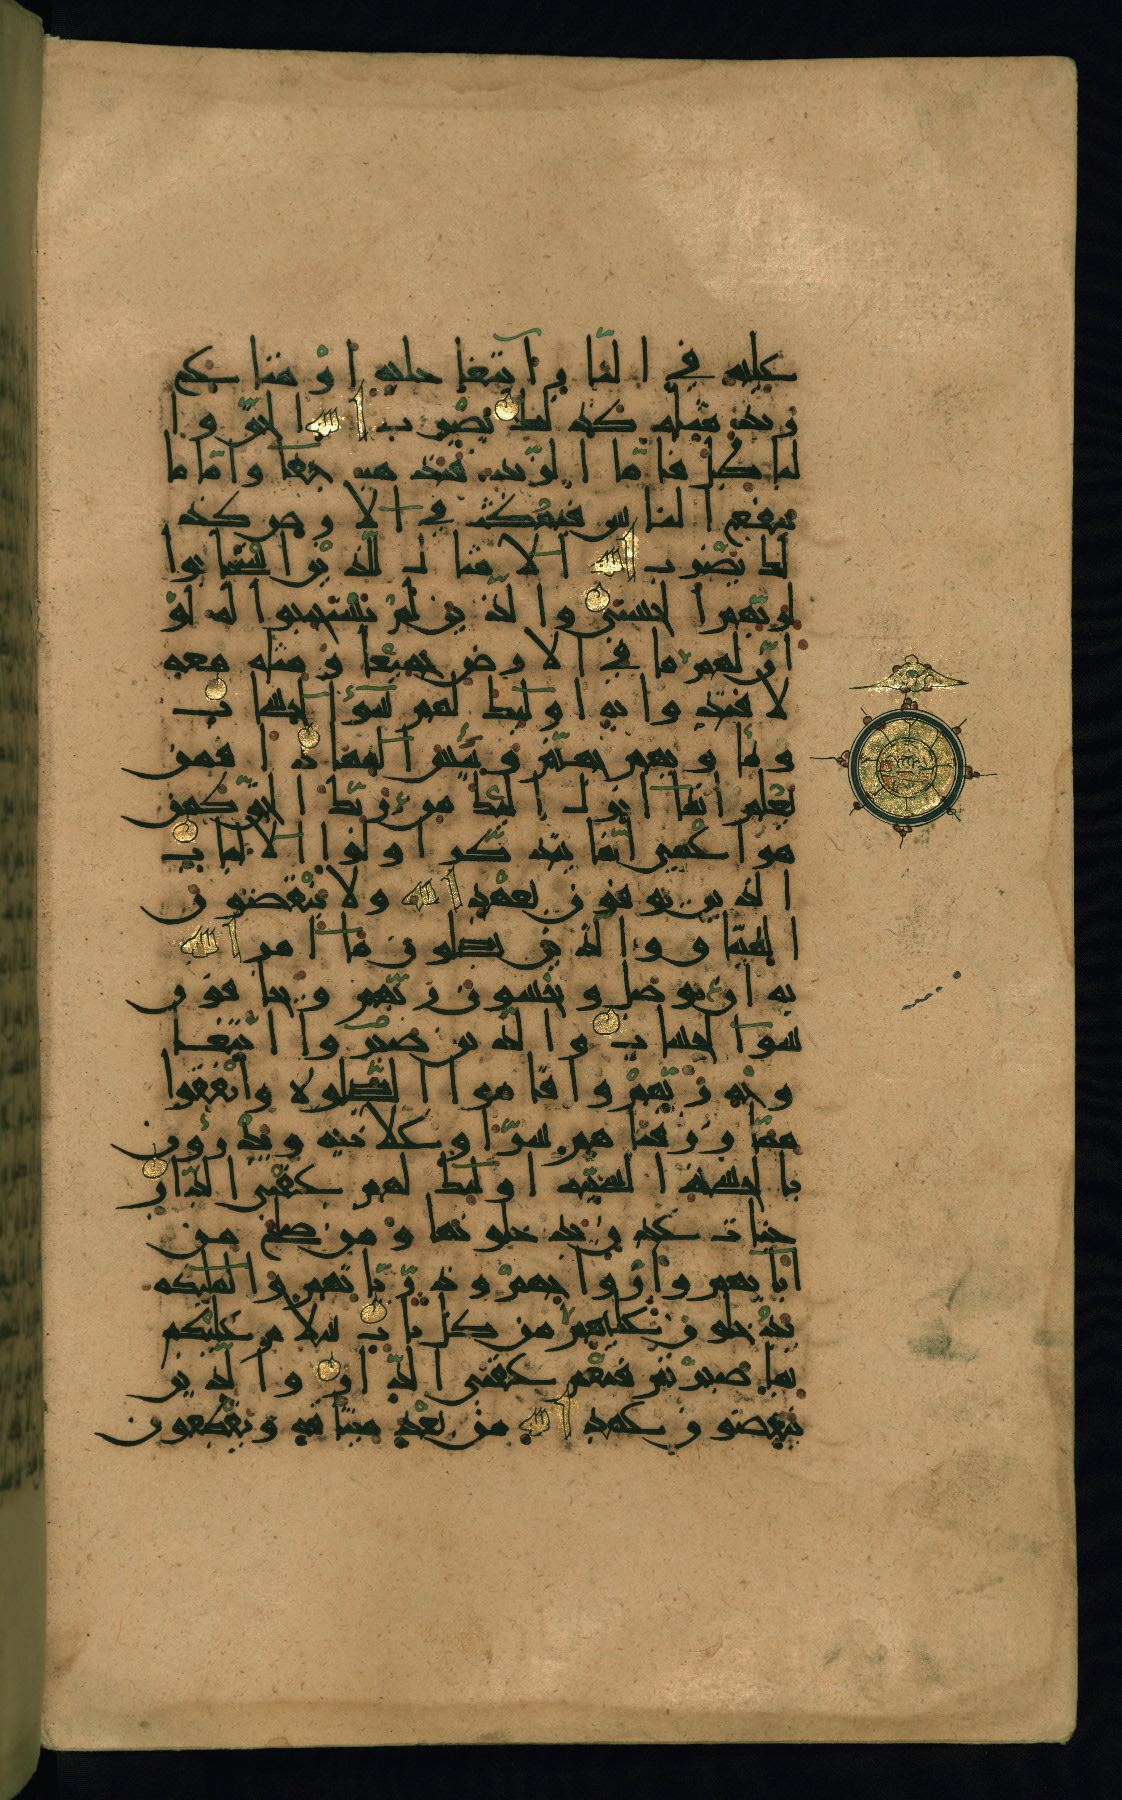 عليه في النار ابتغا حلية او متاع
زبد مثله كذلك يضرب الله الحق وا
لباطل فاما الزبد فيذهب جفا واما ما
ينفع الناس فيمكث في الارض كذ
لك يضرب الله الامثال للذين استجابوا
لربهم الحسنى والذين لم يستجيبوا له لو
ان لهم ما في الارض جميعا ومثله معه
لافتدوا به اولئك لهم سوء الحساب
وماويهم جهنم وبئس المهاد افمن
يعلم انما انزل اليك من ربك الحق كمن
هو اعمى انما يتذكر اولوا الالباب
الذين يوفون بعهد الله ولا ينقضون
الميثاق والذين يصلون ما امر الله
به ان يوصل ويخشون ربهم ويخافون
سوء الحساب والذين صبروا ابتغا
وجه ربهم واقاموا الصلوة وانفقوا
مما رزقناهم سرا وعلانية ويدرؤن
بالحسنة السيئة اولئك لهم عقبى الدار
جنات عدن يدخلونها ومن صلح من
ابايهم وازواجهم وذرياتهم والملئكة
يدخلون عليهم من كل باب سلام عليكم
بما صبرتم فنعم عقبى الدار والذين
ينقضون عهد الله من بعد ميثاقه ويقطعون